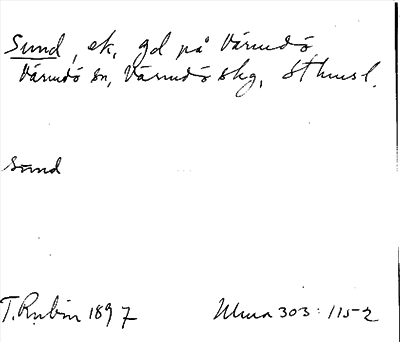 Sund, ek, gd på Värmdö,
Värmdö sn, Värmdö skg, Sthmsl.
sund
T. Rubin 1897 Ulma 303:115-2